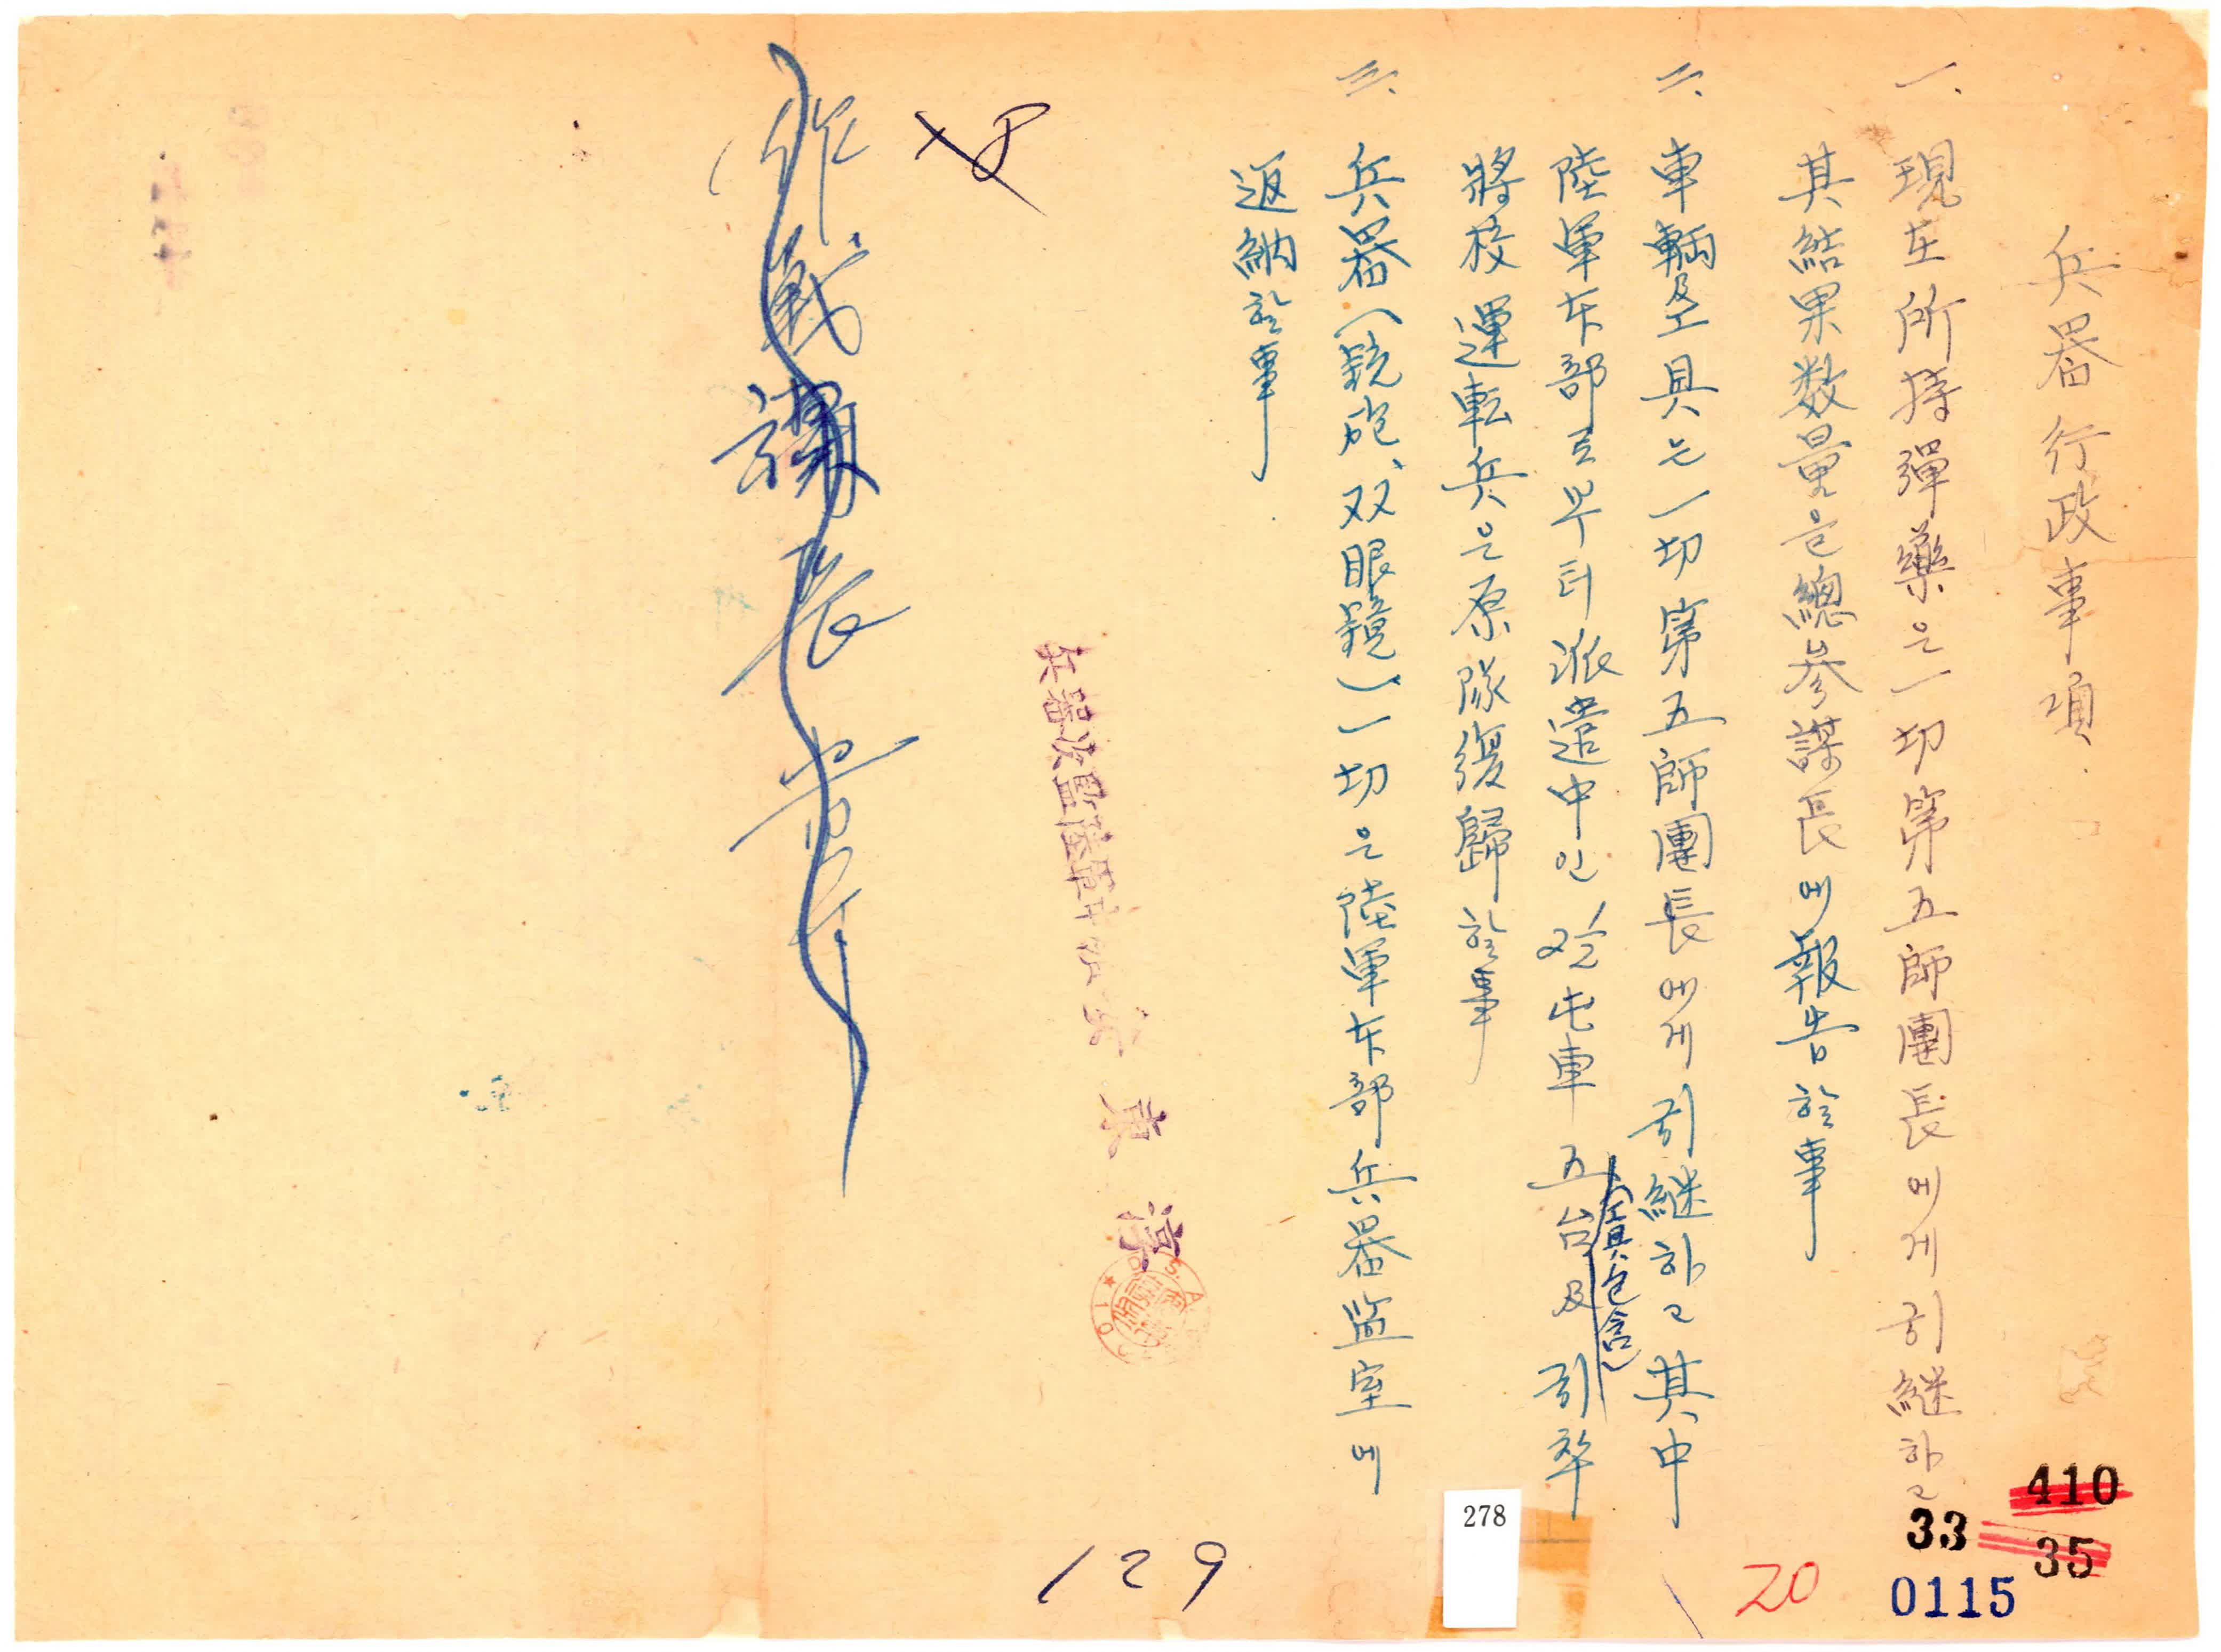 兵器行政事項
一、現在所持彈藥은一切第五師團長에게引継하고
其結果数量을總參謀長에報告할事
二、車輌及工具는一切第五師團長에게引継하고其中
(工具包含)
陸軍本部로부터派遣中인
車五台及引率
將校運転兵은原隊復歸할事
三、兵器(銃砲、双眼鏡)一切은陸軍本部兵器監室에
返納할事
兵器
監陸軍
東淳
作戰課長
129
278
20
410
33
35
0115